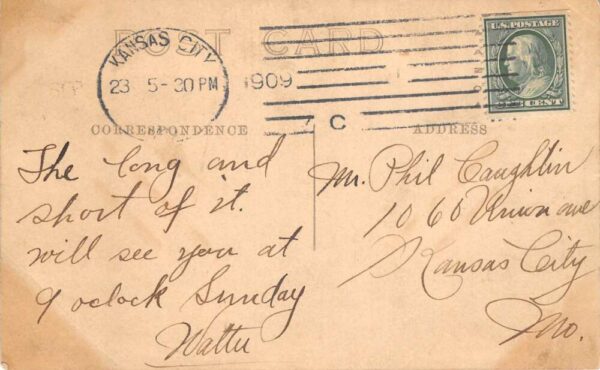 POST CARD
KANSAS CITY
23 5-30 PM
1909
C
U.S. POSTAGE
ONE CENT
CORRESPONDENCE
ADDRESS
The long and
short of it.
will see you at
9 oclock Sunday
Walter
Mr. Phil Caughlin
1060 Union ave
Kansas City
Mo.